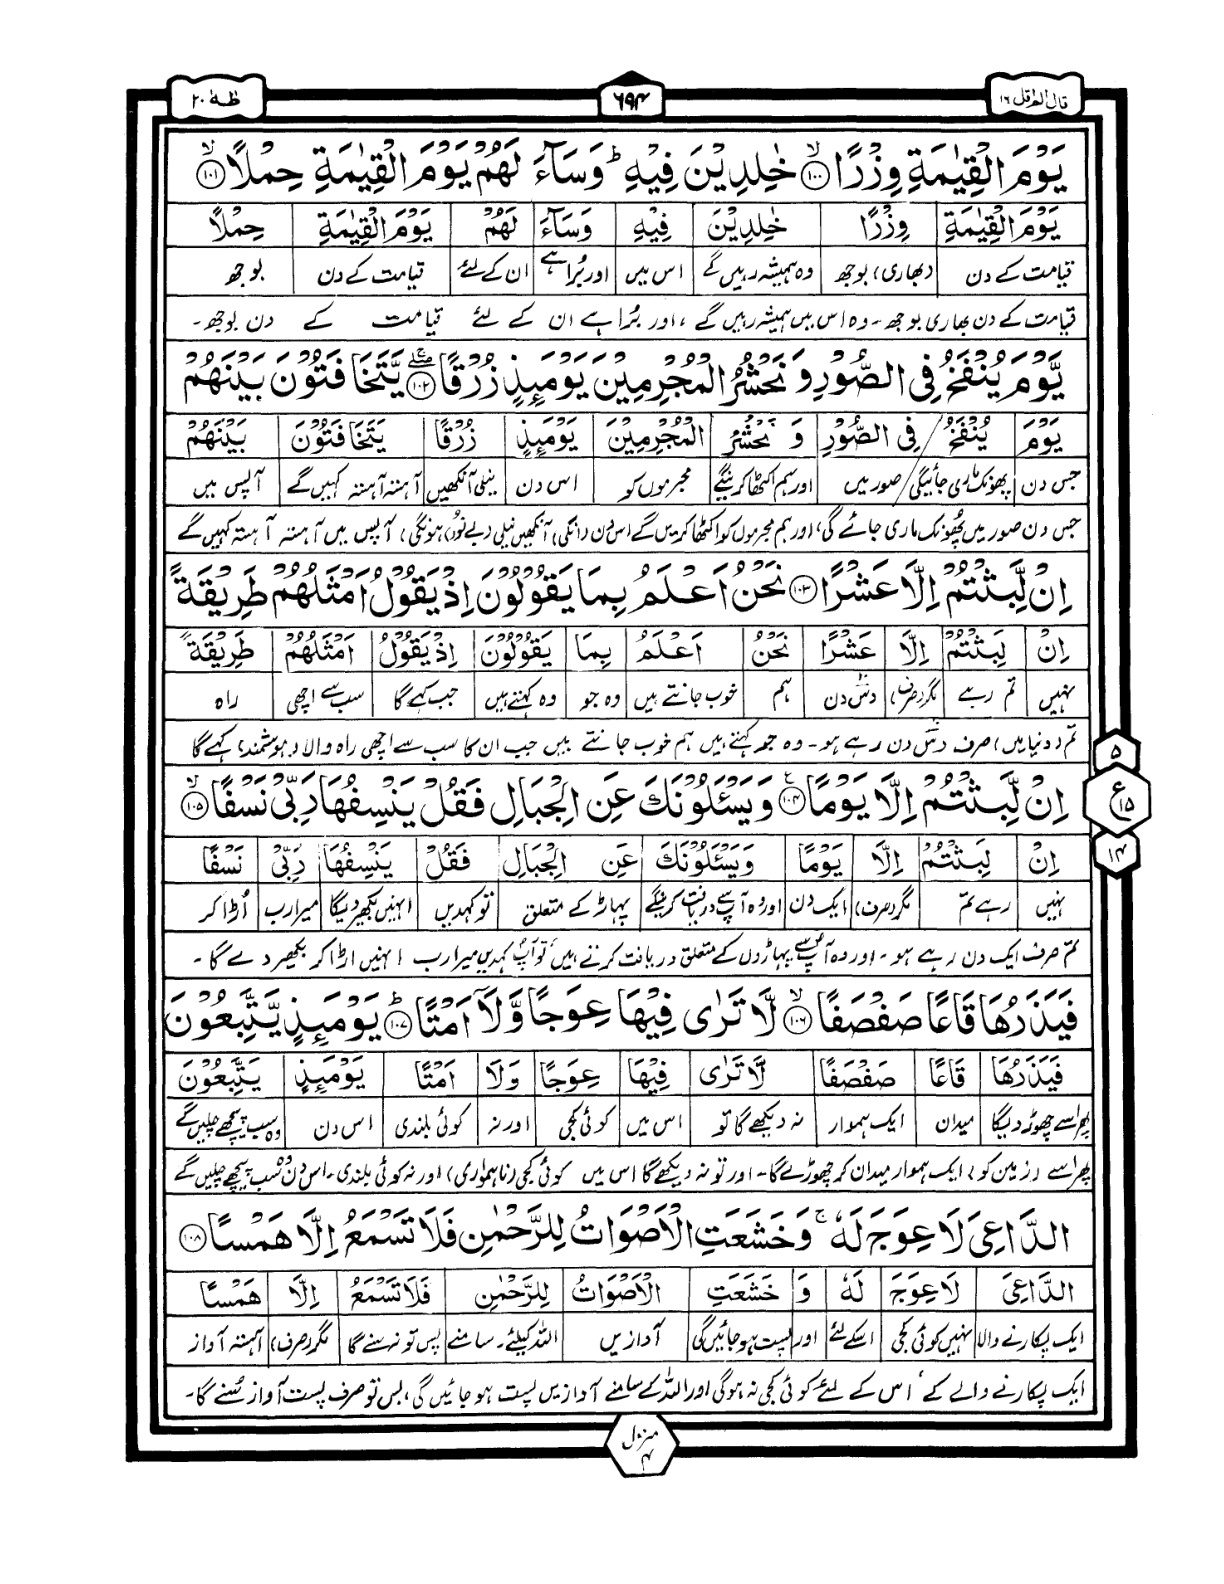 قال الم اقل ١٦
٦٩٤
طٰهٰ ٢٠
يَوْمَ الْقِيٰمَةِ وِزْرًا ۙ‏﴿۱۰۰﴾ خٰلِدِيْنَ فِيْهِ ؕ وَسَآءَ لَهُمْ يَوْمَ الْقِيٰمَةِ حِمْلًا ۙ﴿۱۰۱﴾
يَوْمَ الْقِيٰمَةِ وِزْرًا خٰلِدِيْنَ فِيْهِ وَسَآءَ لَهُمْ يَوْمَ الْقِيٰمَةِ حِمْلًا
قیامت کے دن (بھاری) بوجھ وہ ہمیشہ رہیں گے اس میں اور بُرا ہے ان کے لئے قیامت کے دن بوجھ
قیامت کے دن بھاری بوجھ۔ وہ اس میں ہمیشہ رہیں گے، اور بُرا ہے ان کے لئے قیامت کے دن بوجھ۔
يَّوْمَ يُنْفَخُ فِى الصُّوْرِ وَنَحْشُرُ الْمُجْرِمِيْنَ يَوْمَئِذٍ زُرْقًا ﴿۱۰۲﴾ يَّتَخَافَتُوْنَ بَيْنَهُمْ
يَوْمَ يُنْفَخُ فِى الصُّوْرِ وَ نَحْشُرُ الْمُجْرِمِيْنَ يَوْمَئِذٍ زُرْقًا يَتَخَافَتُوْنَ بَيْنَهُمْ
جس دن پھونک ماری جائیگی صور میں اور ہم اکٹھا کرینگے مجرموں کو اس دن نیلی آنکھیں آہستہ آہستہ کہیں گے آپس میں
جس دن صور میں پھونک ماری جائے گی، اور ہم مجرموں کو اکٹھا کریں گے اس دن (انکی) آنکھیں نیلی (بے نور) ہونگی، آپس میں آہستہ آہستہ کہیں گے
اِنْ لَّبِثْتُمْ اِلَّا عَشْرًا ﴿۱۰۳﴾ نَحْنُ اَعْلَمُ بِمَا يَقُوْلُوْنَ اِذْ يَقُوْلُ اَمْثَلُهُمْ طَرِيْقَةً
اِنْ لَبِثْتُمْ اِلَّا عَشْرًا نَحْنُ اَعْلَمُ بِمَا يَقُوْلُوْنَ اِذْ يَقُوْلُ اَمْثَلُهُمْ طَرِيْقَةً
نہیں تم رہے مگر (صرف) دس دن ہم خوب جانتے ہیں وہ جو وہ کہتے ہیں جب کہے گا سب سے اچھی راہ
تم (دنیا میں) صرف دس دن رہے ہو۔ وہ جو کہتے ہیں ہم خوب جانتے ہیں جب ان کا سب سے اچھی راہ والا (ہوشمند) کہے گا
٥
اِنْ لَّبِثْتُمْ اِلَّا يَوْمًا ﴿۱۰۴﴾ وَيَسْـَٔلُوْنَكَ عَنِ الْجِبَالِ فَقُلْ يَنْسِفُهَا رَبِّىْ نَسْفًا ۙ﴿۱۰۵﴾
ع ١٥
اِنْ لَبِثْتُمْ اِلَّا يَوْمًا وَيَسْـَٔلُوْنَكَ عَنِ الْجِبَالِ فَقُلْ يَنْسِفُهَا رَبِّىْ نَسْفًا
١٤
نہیں رہے تم مگر (صرف) ایک دن اور وہ آپ سے دریافت کرینگے پہاڑ کے متعلق تو کہدیں انہیں بکھیر دیگا میرا رب اُڑا کر
تم صرف ایک دن رہے ہو۔ اور وہ آپ سے پہاڑوں کے متعلق دریافت کرتے ہیں تو آپ کہدیں میرا رب انہیں اڑا کر بکھیر دے گا۔
فَيَذَرُهَا قَاعًا صَفْصَفًا ۙ﴿۱۰۶﴾ لَّا تَرٰى فِيْهَا عِوَجًا وَّلَآ اَمْتًا ؕ﴿۱۰۷﴾ يَوْمَئِذٍ يَّتَّبِعُوْنَ
فَيَذَرُهَا قَاعًا صَفْصَفًا لَّا تَرٰى فِيْهَا عِوَجًا وَلَا اَمْتًا يَوْمَئِذٍ يَتَّبِعُوْنَ
پھر اسے چھوڑ دیگا میدان ایک ہموار نہ دیکھے گا تو اس میں کوئی کجی اور نہ کوئی بلندی اس دن وہ سب پیچھے چلیں گے
پھر اسے (زمین کو) ایک ہموار میدان کر چھوڑے گا۔ اور تو نہ دیکھے گا اس میں کوئی کجی (ناہمواری) اور نہ کوئی بلندی۔ اس دن وہ سب پیچھے چلیں گے
الدَّاعِىَ لَا عِوَجَ لَهٗ ۚ وَخَشَعَتِ الْاَصْوَاتُ لِلرَّحْمٰنِ فَلَا تَسْمَعُ اِلَّا هَمْسًا ﴿۱۰۸﴾
الدَّاعِىَ لَا عِوَجَ لَهٗ وَ خَشَعَتِ الْاَصْوَاتُ لِلرَّحْمٰنِ فَلَا تَسْمَعُ اِلَّا هَمْسًا
ایک پکارنے والا نہیں کوئی کجی اسکے لئے اور پست ہو جائیں گی آوازیں اللہ کیلئے۔ سامنے پس تو نہ سنے گا مگر (صرف) آہستہ آواز
ایک پکارنے والے کے، اس کے لئے کوئی کجی نہ ہوگی اور اللہ کے سامنے آوازیں پست ہو جائیں گی، بس تو صرف پست آواز سُنے گا۔
منزل ٤